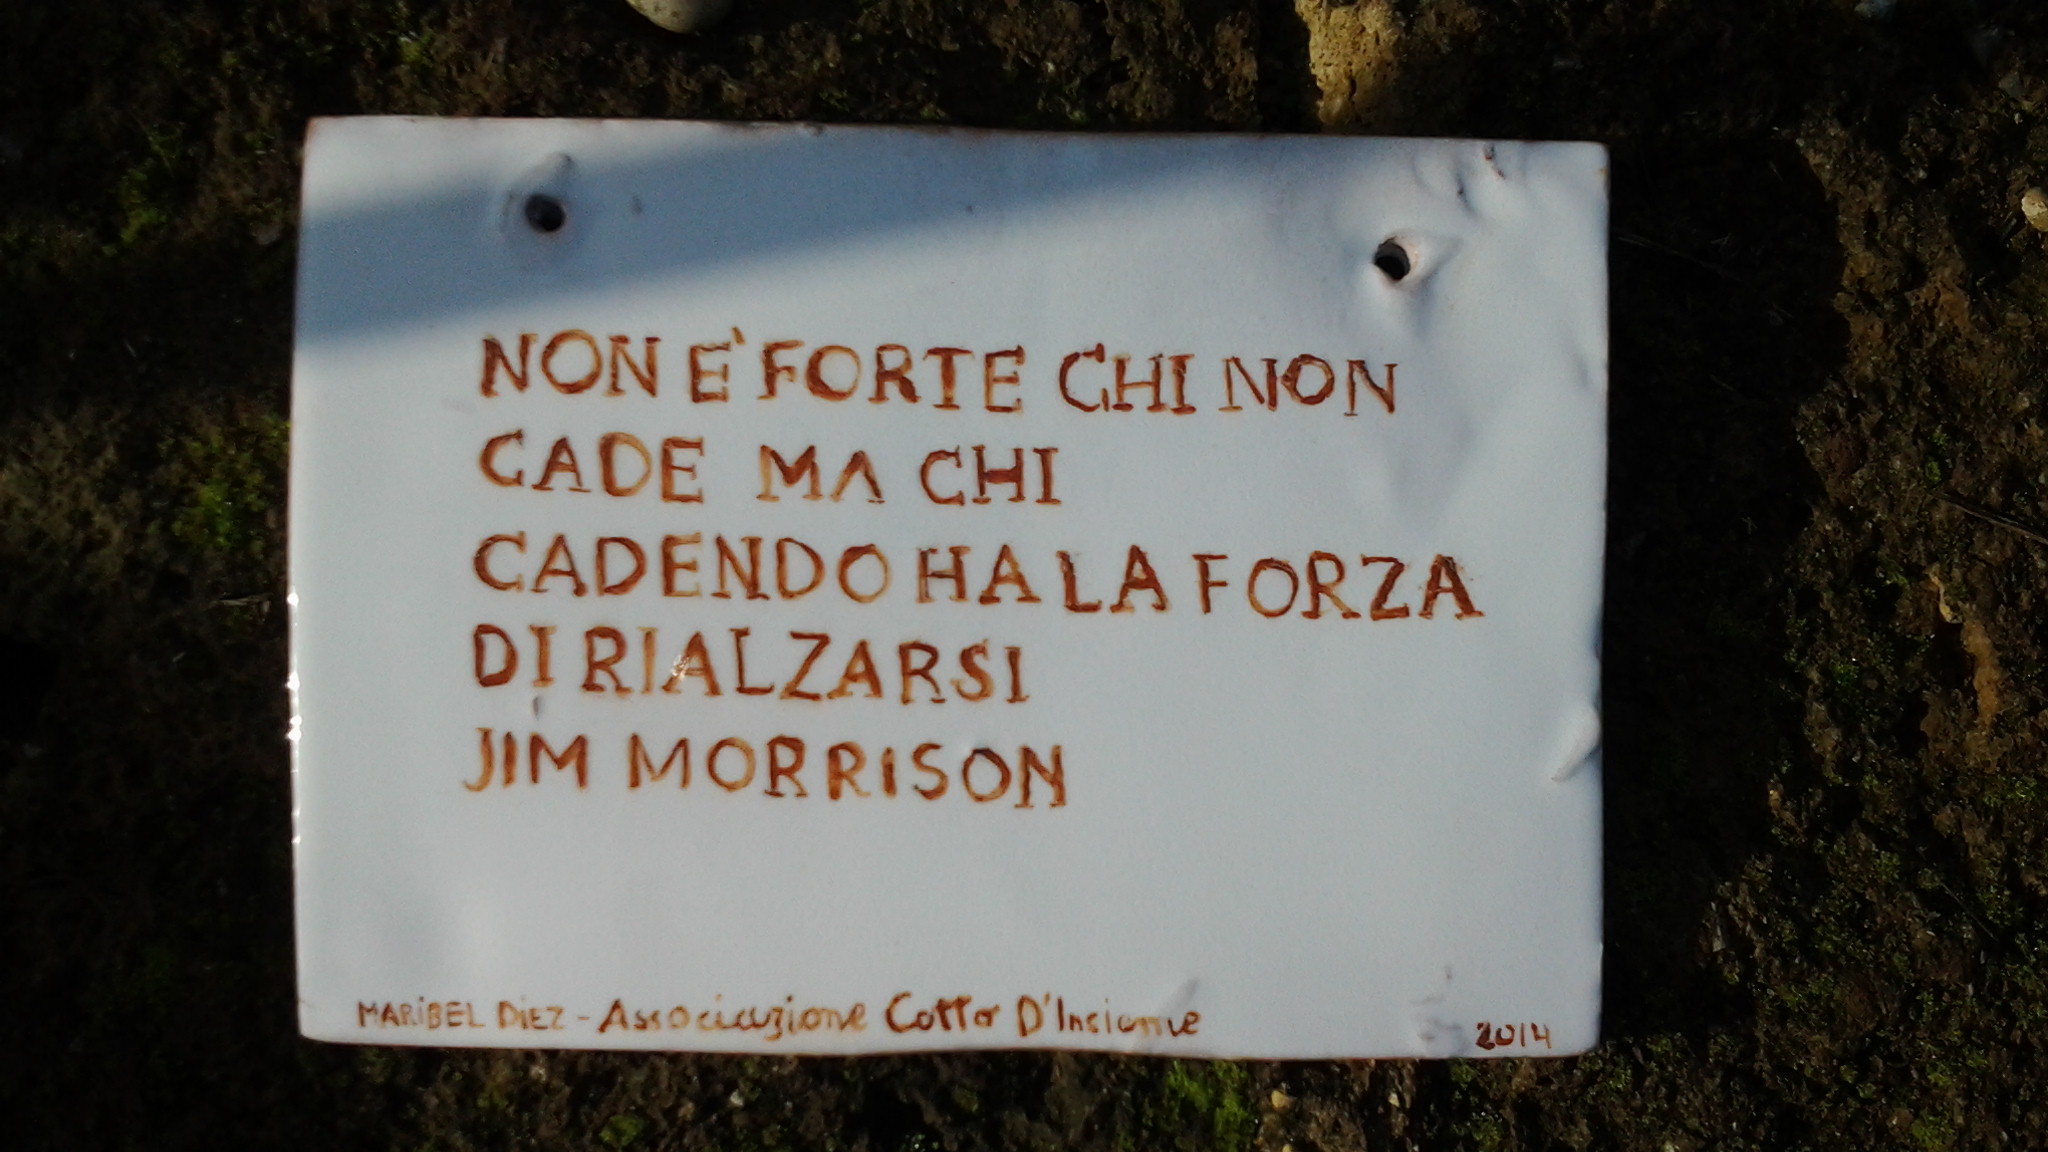 NON E' FORTE CHI NON
CADE MA CHI
CADENDO HA LA FORZA
DI RIALZARSI
JIM MORRISON
MARIBEL DIEZ - Associazione Cotto D'Insieme
2014